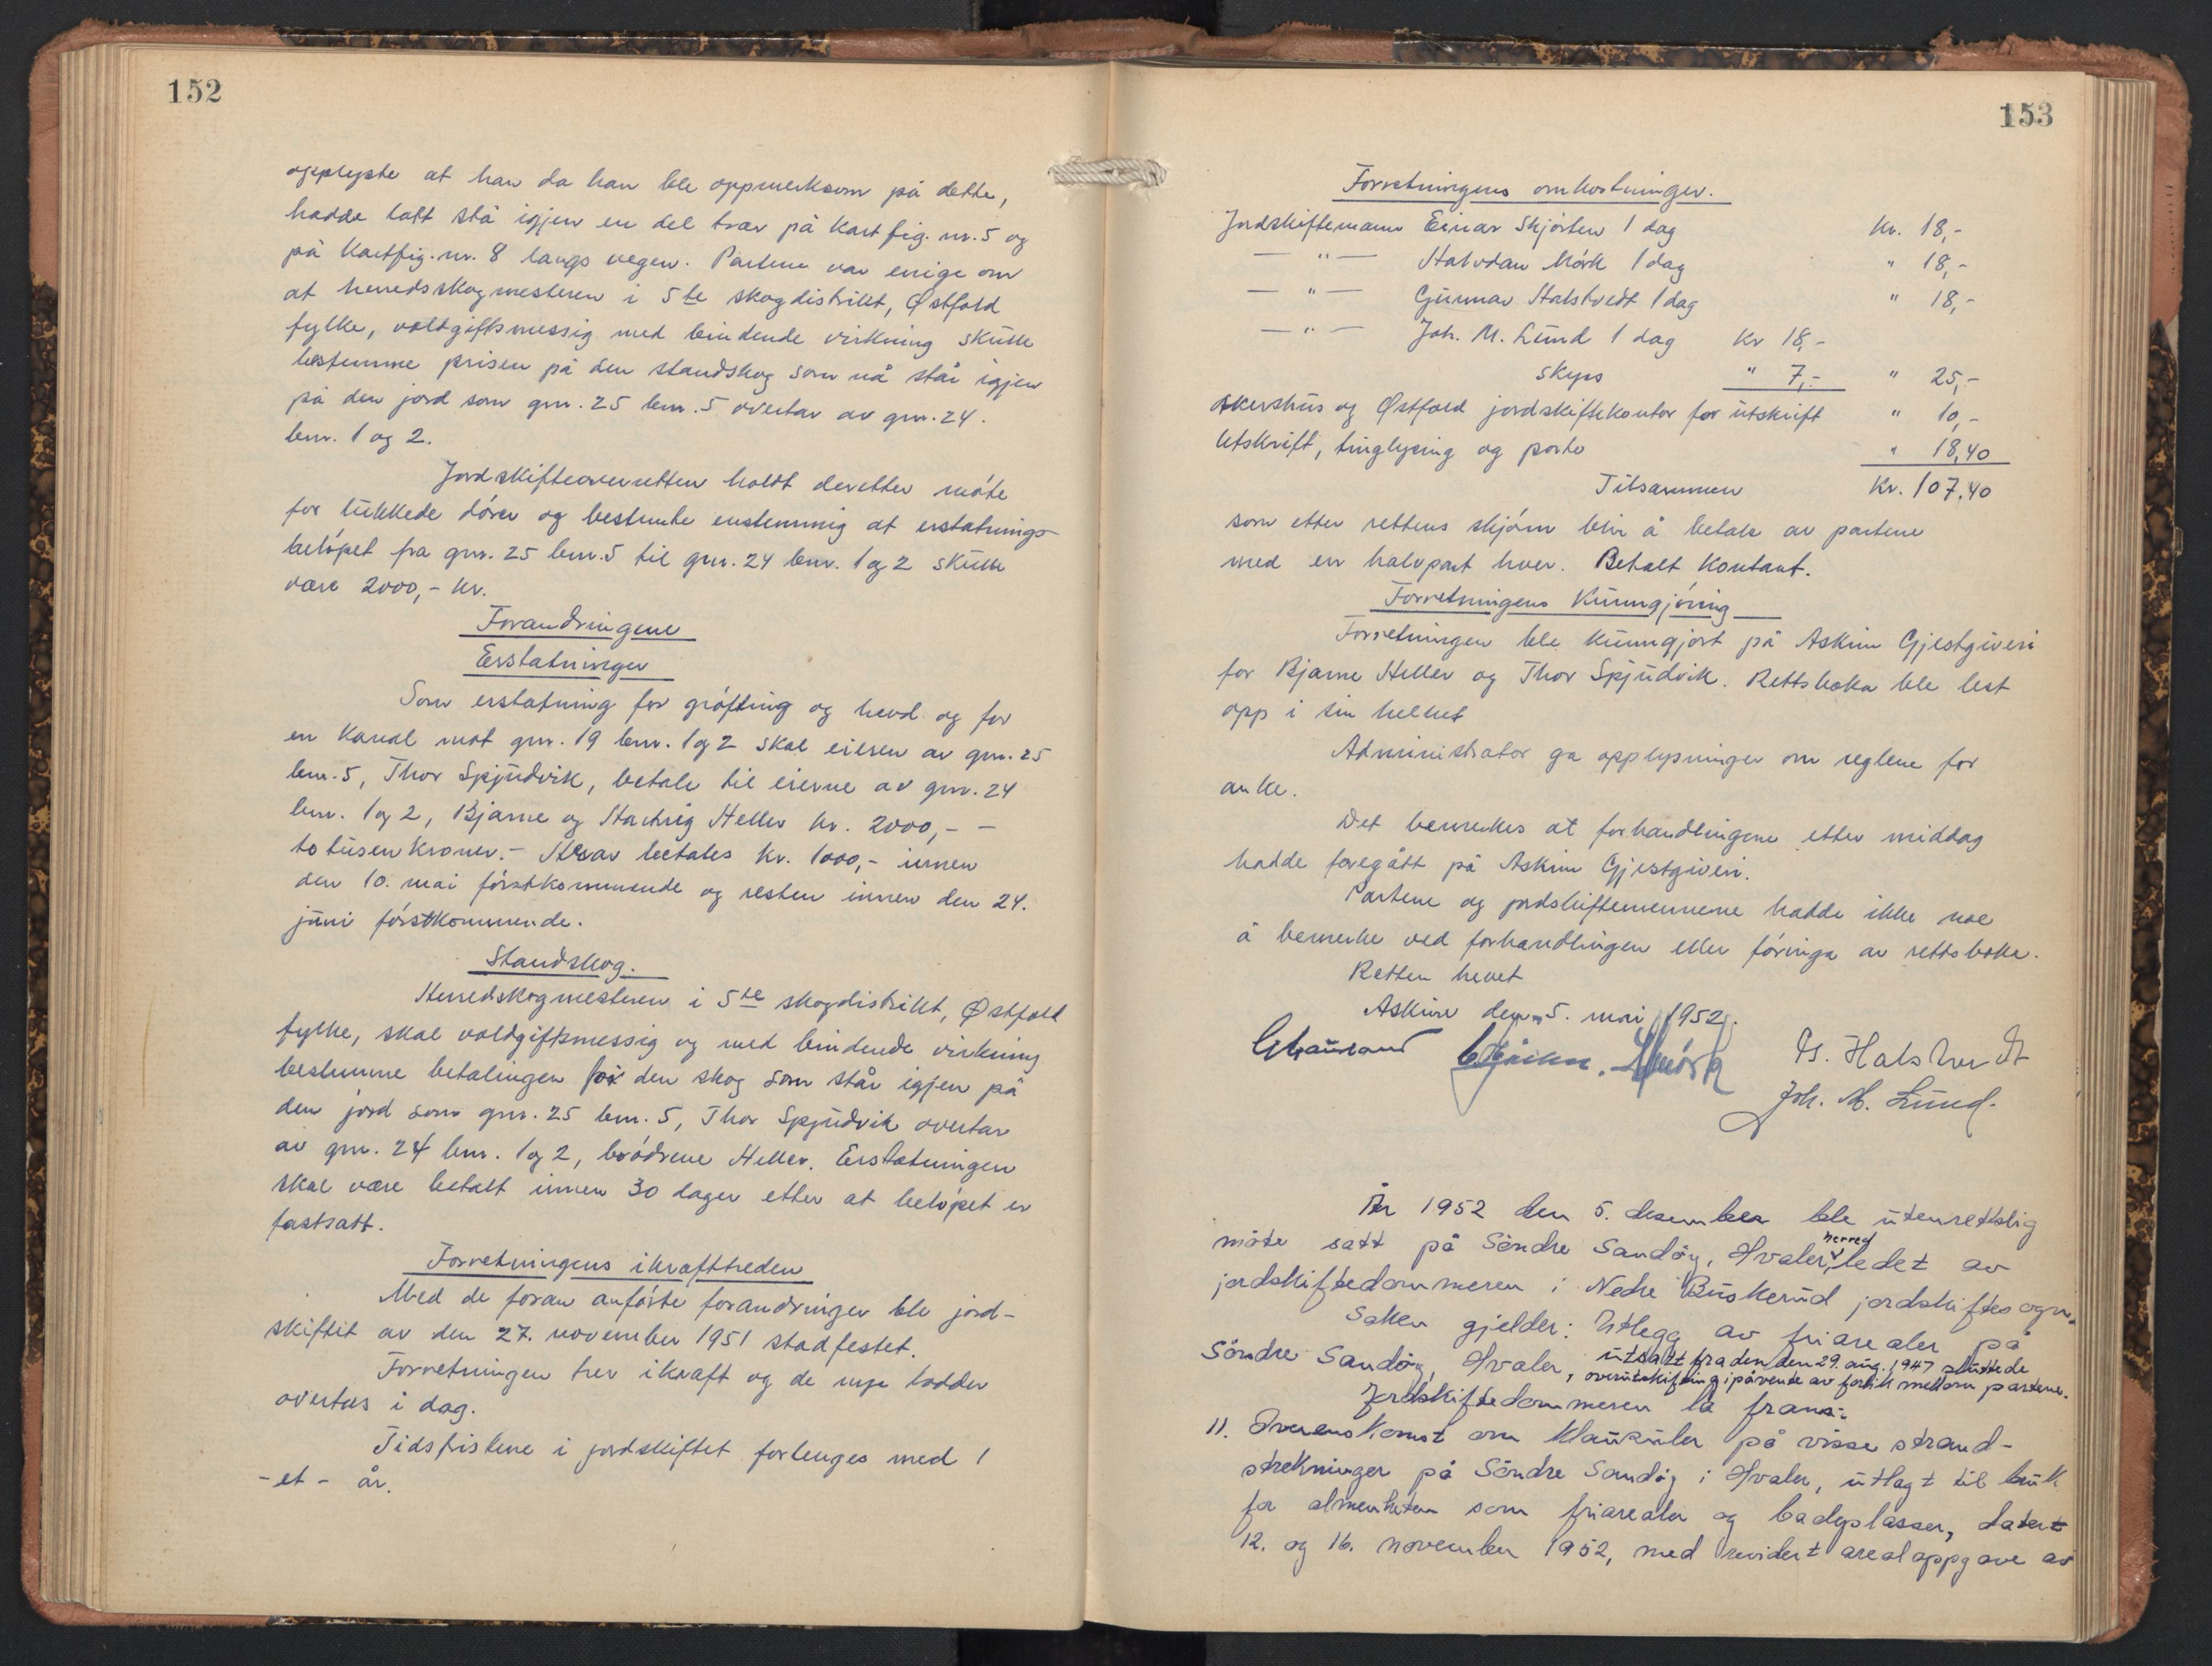 152
opplyste at han da han ble oppmerksom på dette,
hadde latt stå igjen en del trær på kartfig. nr. 5 og
på kartfig. nr. 8 langs vegen. Partene var enige om
at herredsskogmesteren i 5te skogdistrikt, Østfold
fylke, voldgiftsmessig med bindende virkning skulle
bestemme prisen på den standskog som nå står igjen
på den jord som gnr. 25 bnr. 5 overtar av gnr. 24.
bnr. 1 og 2.
Jordskifteoverretten holdt deretter møte
for lukkede dører og bestemte enstemmig at erstatnings-
beløpet fra gnr. 25 bnr. 5 til gnr. 24 bnr. 1 og 2 skulle
være 2000,- kr.
Forandringene
Erstatninger
Som erstatning for grøfting og hevd og for
en kanal mot gnr. 19 bnr. 1 og 2 skal eieren av gnr. 25
bnr. 5, Thor Spjudvik, betale til eierne av gnr. 24
bnr. 1 og 2, Bjarne og Hartvig Heller kr. 2000,- -
totusenkroner.- Herav betales kr. 1000,- innen
den 10. mai førstkommende og resten innen den 24.
juni førstkommende.
Standskog.
Herredskogmesteren i 5te skogdistrikt, Østfold
fylke, skal voldgiftsmessig og med bindende virkning
bestemme betalingen for den skog som står igjen på
den jord som gnr. 25 bnr. 5, Thor Spjudvik overtar
av gnr. 24 bnr. 1 og 2, brødrene Heller. Erstatningen
skal være betalt innen 30 dager etter at beløpet er
fastsatt.
Forretningens ikrafttreden
Med de foran anførte forandringer ble jord-
skiftet av den 27. november 1951 stadfestet.
Forretningen trer ikraft og de nye lodder
overtas i dag.
Tidsfristene i jordskiftet forlenges med 1
- et - år.
153
Forretningens omkostninger.
Jordskiftemann Einar Skjørten 1 dag Kr. 18,-
— " — Halvdan Mørk 1 dag " 18,-
— " — Gunnar Halstvedt 1 dag " 18,-
— " — Joh. M. Lund 1 dag Kr 18,-
skyss " 7,- " 25,-
Akershus og Østfold jordskiftekontor for utskrift " 10,-
Utskrift, tinglysing og porto " 18,40
Tilsammen Kr. 107,40
som etter rettens skjønn blir å betale av partene
med en halvpart hver. Betalt kontant.
Forretningens kunngjøring
Forretningen ble kunngjort på Askim Gjestgiveri
for Bjarne Heller og Thor Spjudvik. Rettsboka ble lest
opp i sin helhet
Administrator ga opplysninger om reglene for
anke.
Det bemerkes at forhandlingene etter middag
hadde foregått på Askim Gjestgiveri.
Partene og jordskiftemennene hadde ikke noe
å bemerke ved forhandlingen eller føringa av rettsboka.
Retten hevet
Askim den 5. mai 1952.
Mørk G. Halstvedt
Joh. M. Lund.
År 1952 den 5. desember ble utenrettslig
møte satt på Søndre Sandøy, Hvaler herred, ledet av
jordskiftedommeren i Nedre Buskerud jordskiftesogn.
Saken gjelder: Utlegg av friarealer på
Søndre Sandøy, Hvaler, utsatt fra den den 29. aug. 1947 sluttede
overutskifting i påvente av forlik mellom partene.
Jordskiftedommeren la fram:
1). Overenskomst om klausuler på visse strand-
strekninger på Søndre Sandøy i Hvaler, utlagt til bruk
for almenheten som friarealer og badeplasser, datert
12. og 16. november 1952, med revidert arealoppgave av